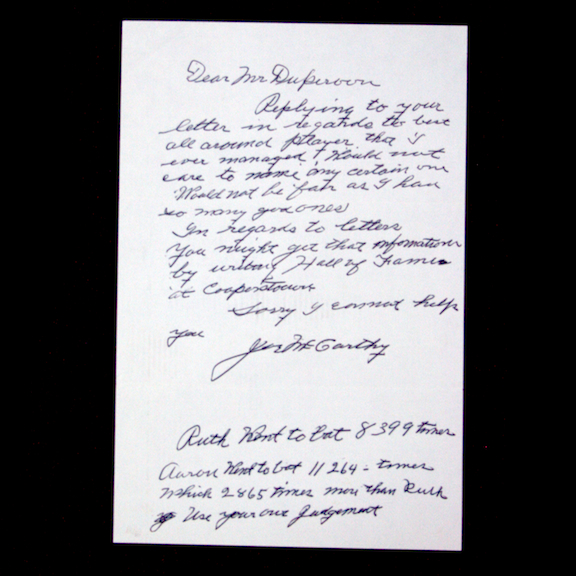 Dear Mr Duperoon
Replying to your
letter in regards to best
all around player that I
ever managed I Would not
care to name any certain one
Would not be fair as I had
so many good ones
In regards to letters
You might get that information
by writing Hall of Fame
at Cooperstown
Sorry I cannot help
you
Joe McCarthy
Ruth Went to bat 8399 times
Aaron Went to bat 11264 - times
Which 2865 times more than Ruth
Use your own Judgement